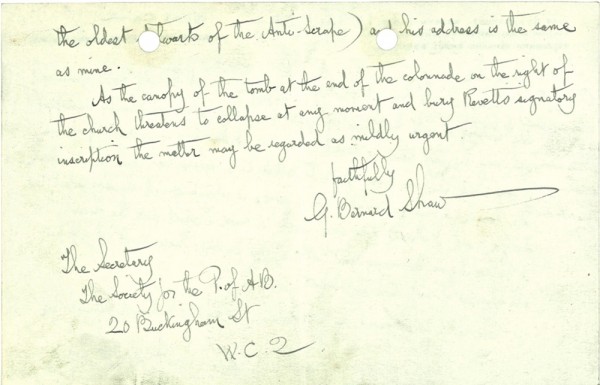 the oldest stalwarts of the Anti-Scrape) and his address is the same
as mine.
As the canopy of the tomb at the end of the colonnade on the right of
the church threatens to collapse at any moment and bury Revett's signatory
inscription the matter may be regarded as mildly urgent
faithfully
G. Bernard Shaw
The Secretary
The Society for the P. of A.B.
20 Buckingham St
W.C.2